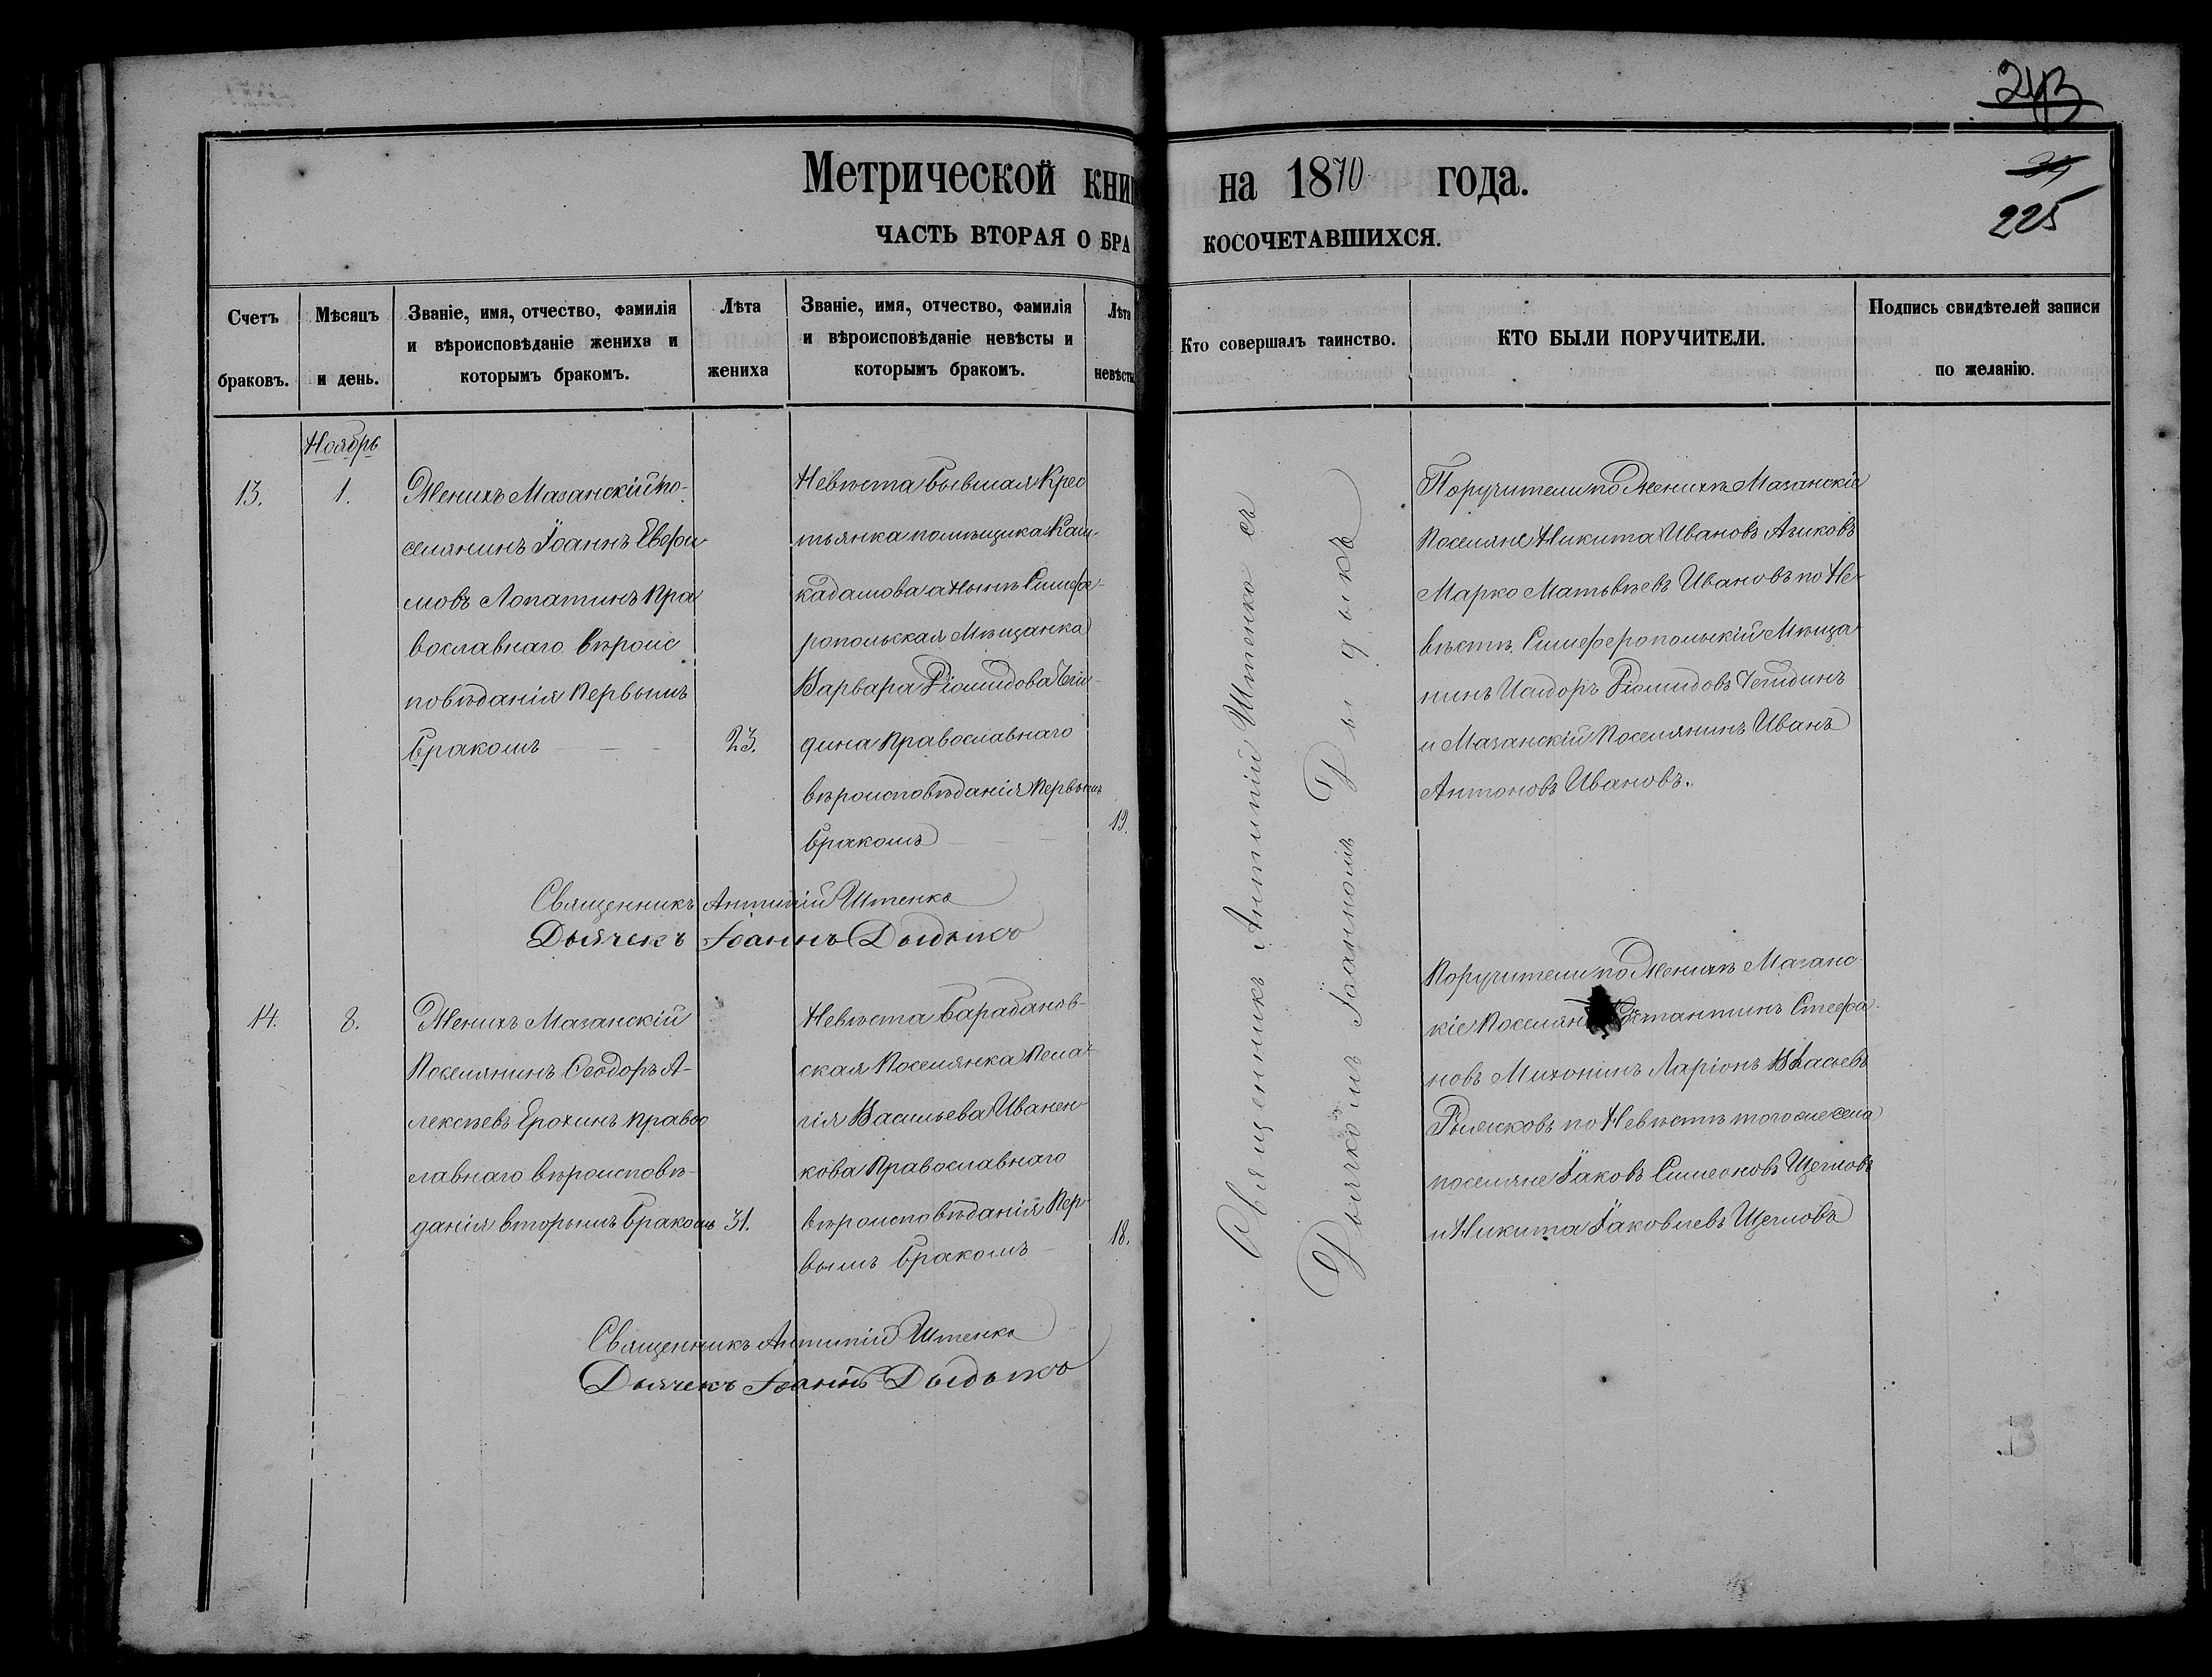 243
39
225
Метрической кни на 1870 года.
ЧАСТЬ ВТОРАЯ О БРА КОСОЧЕТАВШИХСЯ.
Счетъ браковъ.
Мѣсяцъ и день.
Званіе, имя, отчество, фамилія
и вѣроисповѣданіе жениха и
которымъ бракомъ.
Лѣта
жениха
Званіе, имя, отчество, фамилія
и вѣроисповѣданіе невѣсты и
которымъ бракомъ.
Лѣта
невѣсты
Кто совершалъ таинство.
КТО БЫЛИ ПОРУЧИТЕЛИ.
Подпись свидѣтелей записи
по желанію.
Ноябрь
13.
1.
Женихъ Мазанскій по-
селянинъ Іоаннъ Евфи-
мовъ Лопатинъ Пра
вославнаго вѣроис
повѣданія Первымъ
бракомъ
23.
Невѣста бывшая Крес
тьянка помѣщика Каш-
кадамова а нынѣ Симфе-
ропольская Мѣщанка
Варвара Діомидова
дина Православнаго
вѣроисповѣданія Первымъ
бракомъ
19.
Священникъ Антипій Штенко съ
Дьячкомъ Іоанномъ Дыдыкъ
Поручители по Женихѣ Мазанскіе
Поселяне Никита Ивановъ Азиковъ
Марко Матвѣевъ Ивановъ по Не-
вѣстѣ Симферопольскій Мѣща-
нинъ Исидоръ Діомидовъ
и Мазанскій Поселянинъ Иванъ
Антоновъ Ивановъ.
Священникъ Антипій Штенко
Дьячекъ Іоаннъ Дыдыко
14.
8.
Женихъ Мазанскій
Поселянинъ Ѳеодоръ А-
лексѣевъ Ерохинъ Правос
лавнаго вѣроисповѣ-
данія вторымъ бракомъ
31.
Невѣста Барабанов-
ская Поселянка Пела-
гія Васильева Иванен-
кова Православнаго
вѣроисповѣданія Пер-
вымъ бракомъ
18.
Поручители по Женихѣ Мазанс-
кіе Поселяне Костантинъ Стефа-
новъ Михонинъ Ларіонъ Власьевъ
по Невѣстѣ того же села
поселяне Іаковъ Симеоновъ Щегловъ
и Никита Іаковлевъ Щегловъ
Священникъ Антипій Штенко
Дьячекъ Іоаннъ Дыдыко